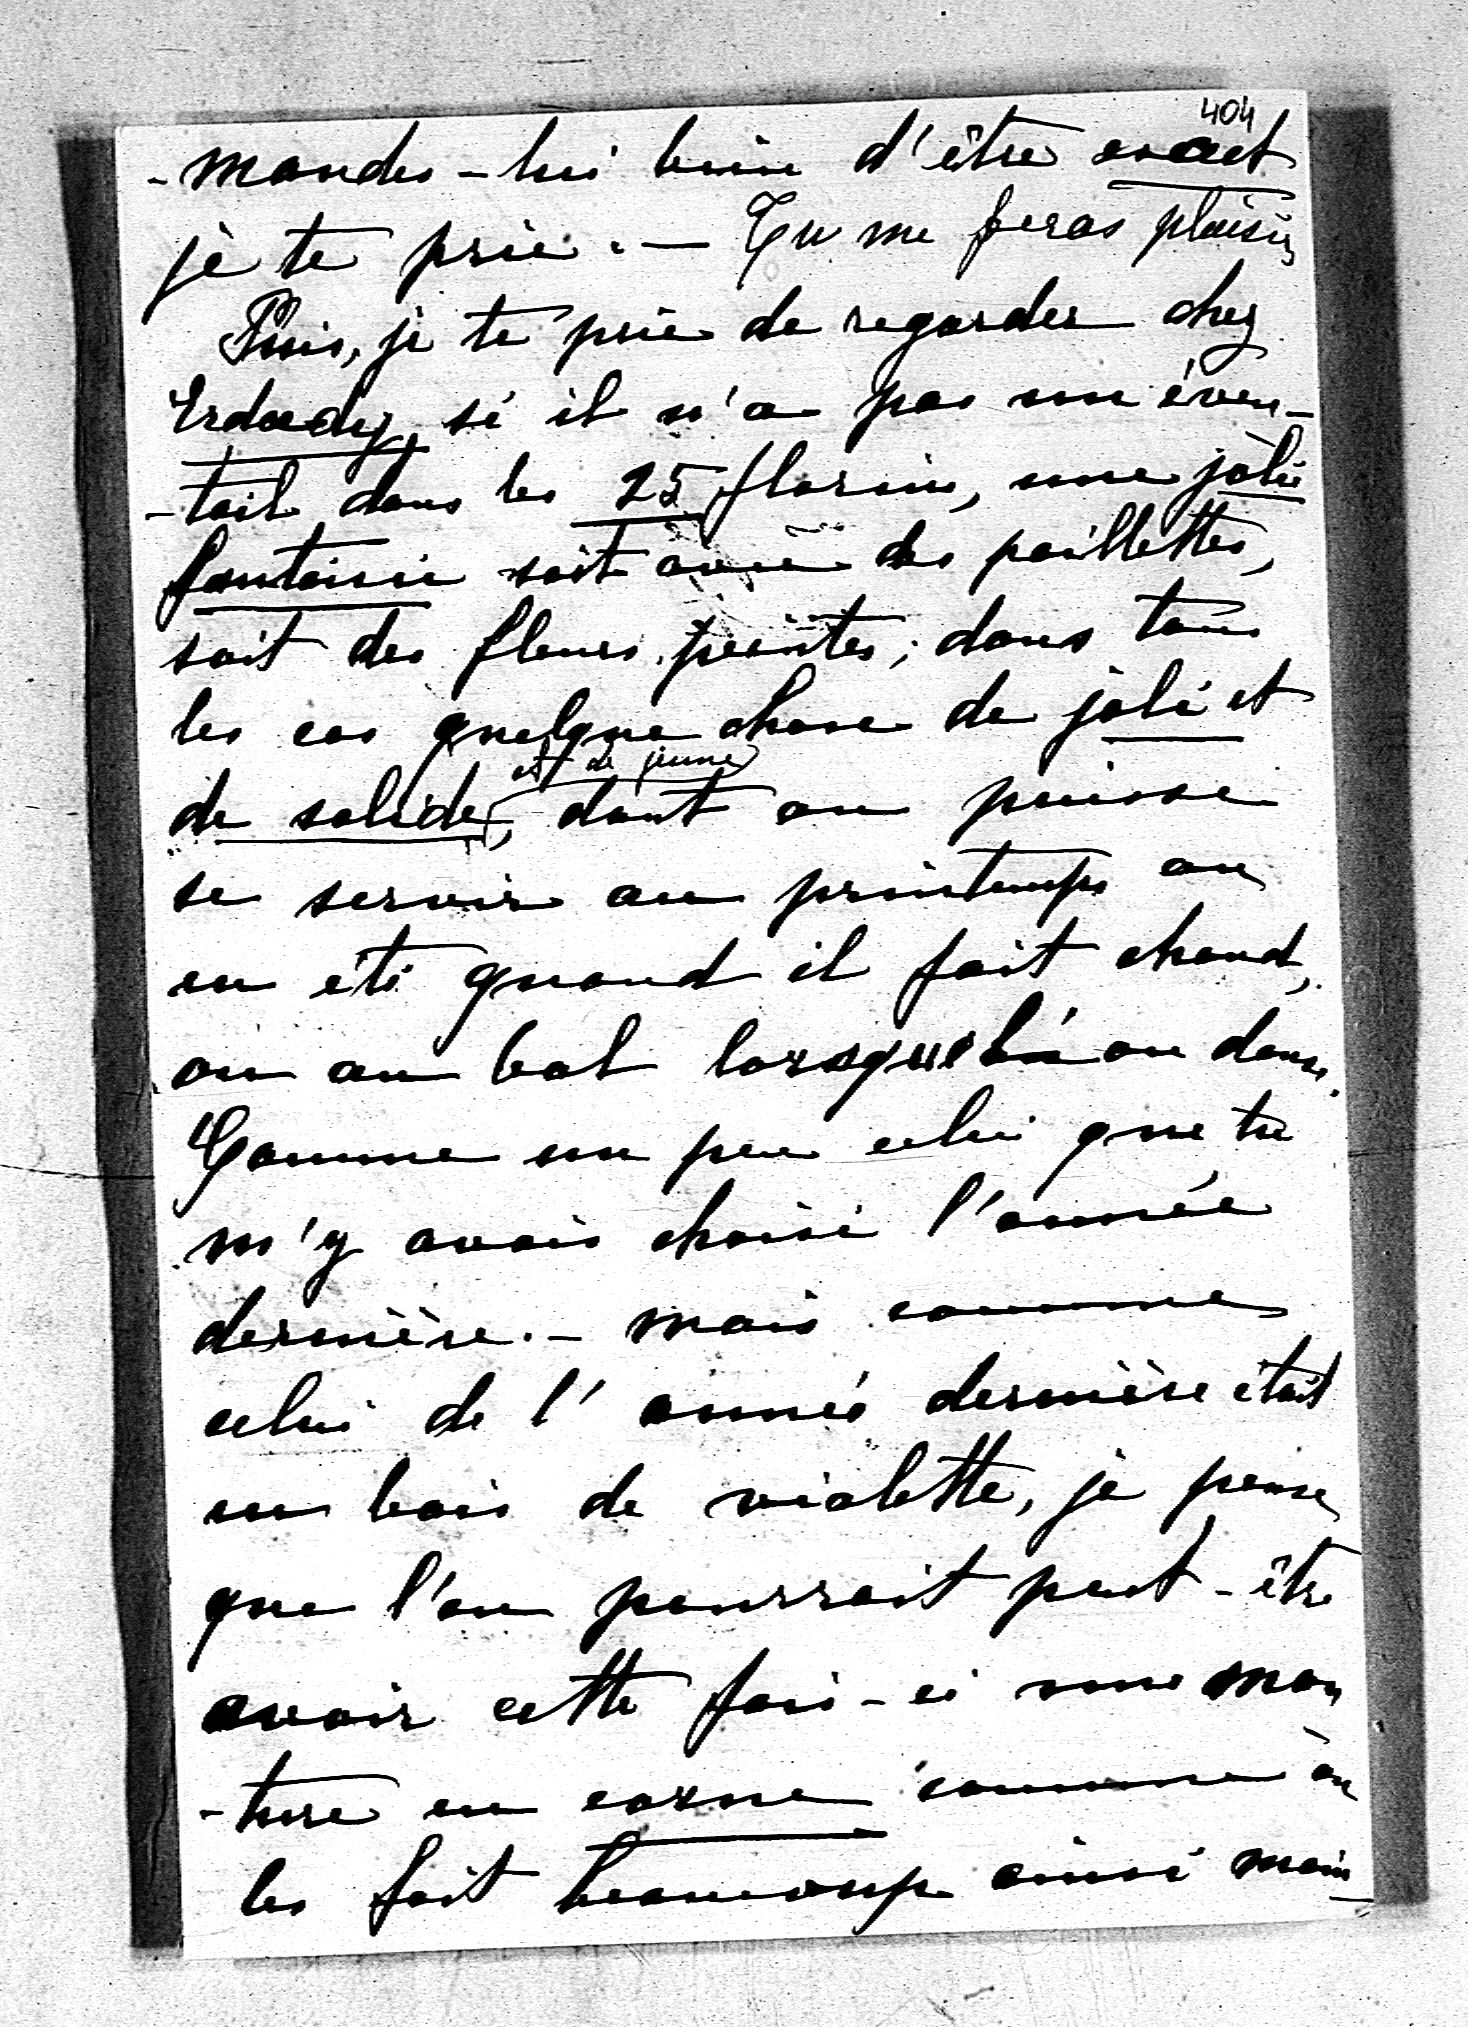 404
-mandes-lui bien d'être exact
je te prie. — Tu me feras plaisir
Puis, je te prie de regarder chez
Erdoedy, si il n'a pas un éven-
-tail dans les 25 florins, une jolie
fantaisie soit avec des paillettes,
soit des fleurs peintes; dans tous
les cas quelque chose de joli et
et de jeune
de solide, dont on puisse
se servir au printemps ou
en été quand il fait chaud,
ou au bal lorsque l'on danse.
Comme un peu celui que tu
m'y avais choisi l'année
dernière. - mais comme
celui de l'année dernière était
en bois de violette, je pense
que l'on pourrait peut-être
avoir cette fois-ci une mon
-ture en corne comme on
les fait beaucoup ainsi main-